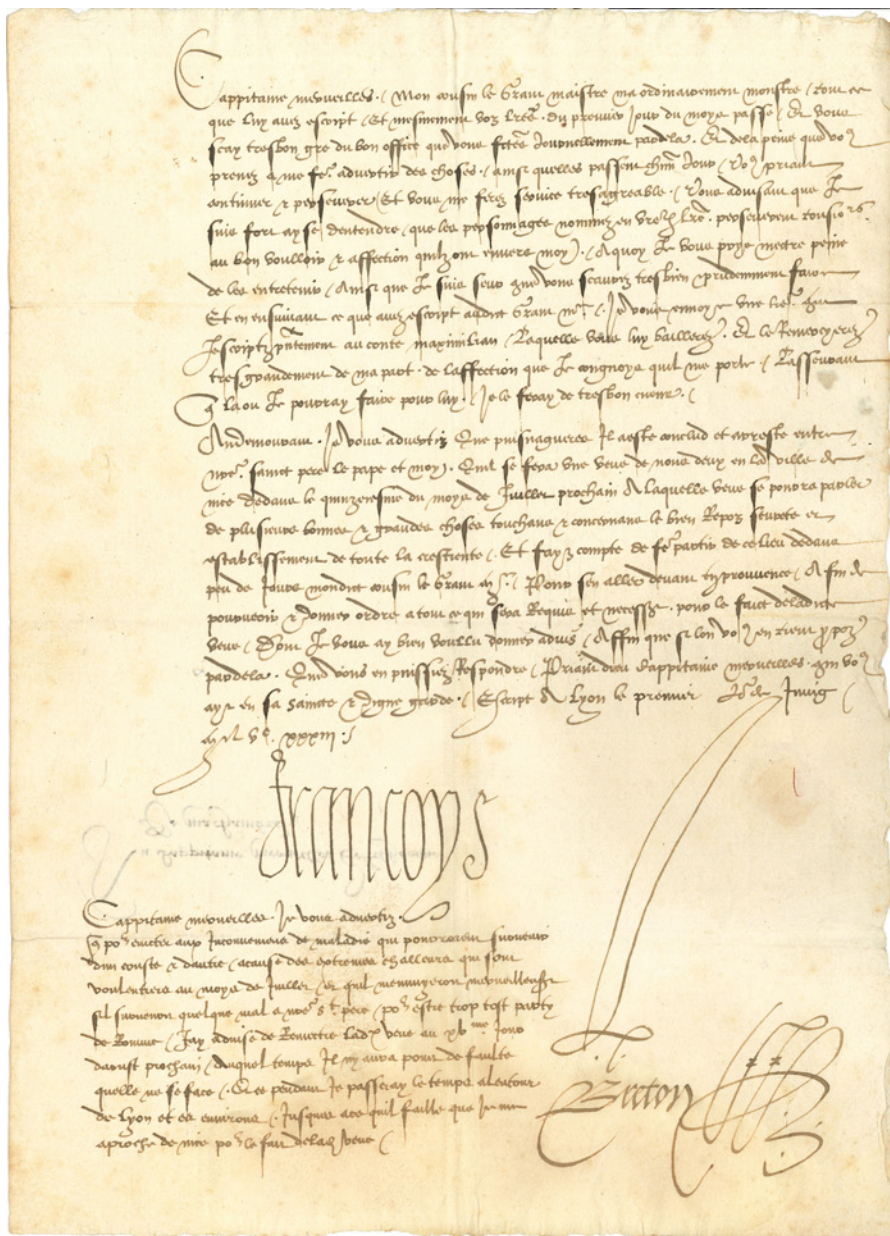 Cappitaine merveilles. Mon cousin le Gram maistre ma ordinairement monstre tout ce
que luy avez escript, Et mesmement voz lrẽs. du premier jour du moys passe, Et vous
scay tresbon gre du bon office que vous faictes journellement pardela. Et dela peine que vo9
prenez a me fẽ advertir des choses, ainsi quelles passent chũn jour, Vo9 priant
continuer & perseverer, Et vous me ferez service tresagreable. Vous advisant que Je
suis fort ayse dentendre, que les personnages nommez en vrẽ lrẽ. perseverent tousio˞s
au bon voulloir & affection quilz ont envers moy. A quoy Je vous prye mectre peine
de les entretenir, Ainsi que Je suis seur que vous scaurez tresbien & prudemment faire
Et en ensuivant ce que avez escript audit Gram mẽ. Je vous envoye une lrẽ que
Jescriptz pñtement au conte maximilian, Laquelle vous luy baillerez. Et le Remercyerez
tresgrandement de ma part. de laffection que Je congnoys quil me porte, Lasseurant
q̃ la ou Je pourray faire pour luy. Je le feray de tresbon cueur.
Audemourant. Je vous advertiz Que puisnagueres Il a este conclud et arreste entre
nrẽ sainct pere le pape et moy. Quil se fera une veue de nous deux en lad ville de
nice dedans le quinzeiesme du moys de Juillet prochain A laquelle veue se pourra parler
de plusieurs bonnes & grandes choses touchans & concernans le bien Repoz seurete et
establissement de toute la crestiente. Et fays compte de fẽ partir de ce lieu dedans
peu de Jours mondict cousin le Gram mẽ. Pour sen aller devant en prouvence, A fin de
pourveoir & donner ordre a tout ce qui sera Requis et necessẽ. pour le faict deladicte
veue, Dont Je vous ay bien voullu donner advis, Affin que si lon vo9 en tient propoz
pardela. Que vous en puissiez Respondre, Priant dieu Cappitaine merveilles. quil vo9
ayt en sa saincte & digne garde. Escript A Lyon le premier Jo˞ de Juing
mil vc xxxiii.
Francoys
Cappitaine merveilles. Je vous advertiz.
q̃ po˞ eviter aux Inconveniens de maladie qui pourroient survenir
dun couste & dautre, a cause des extremes challeurs qui sont
voulentiers au moys de Juillet, et quil mennuyeroit merveilleusẽt
sil survenoit quelque mal a nrẽ s.t pere, po˞ estre trop tost party
de Romme, Jay advise de Remectre lad veue au xvme Jour
daoust prochain, duquel temps Il ny aura point de faulte
quelle ne se face. Et ce pendant Je passeray le temps alentour
de Lyon et es environs, Jusques a ce quil faille que Je me
aproche de nice po˞ le fait delad veue
Breton